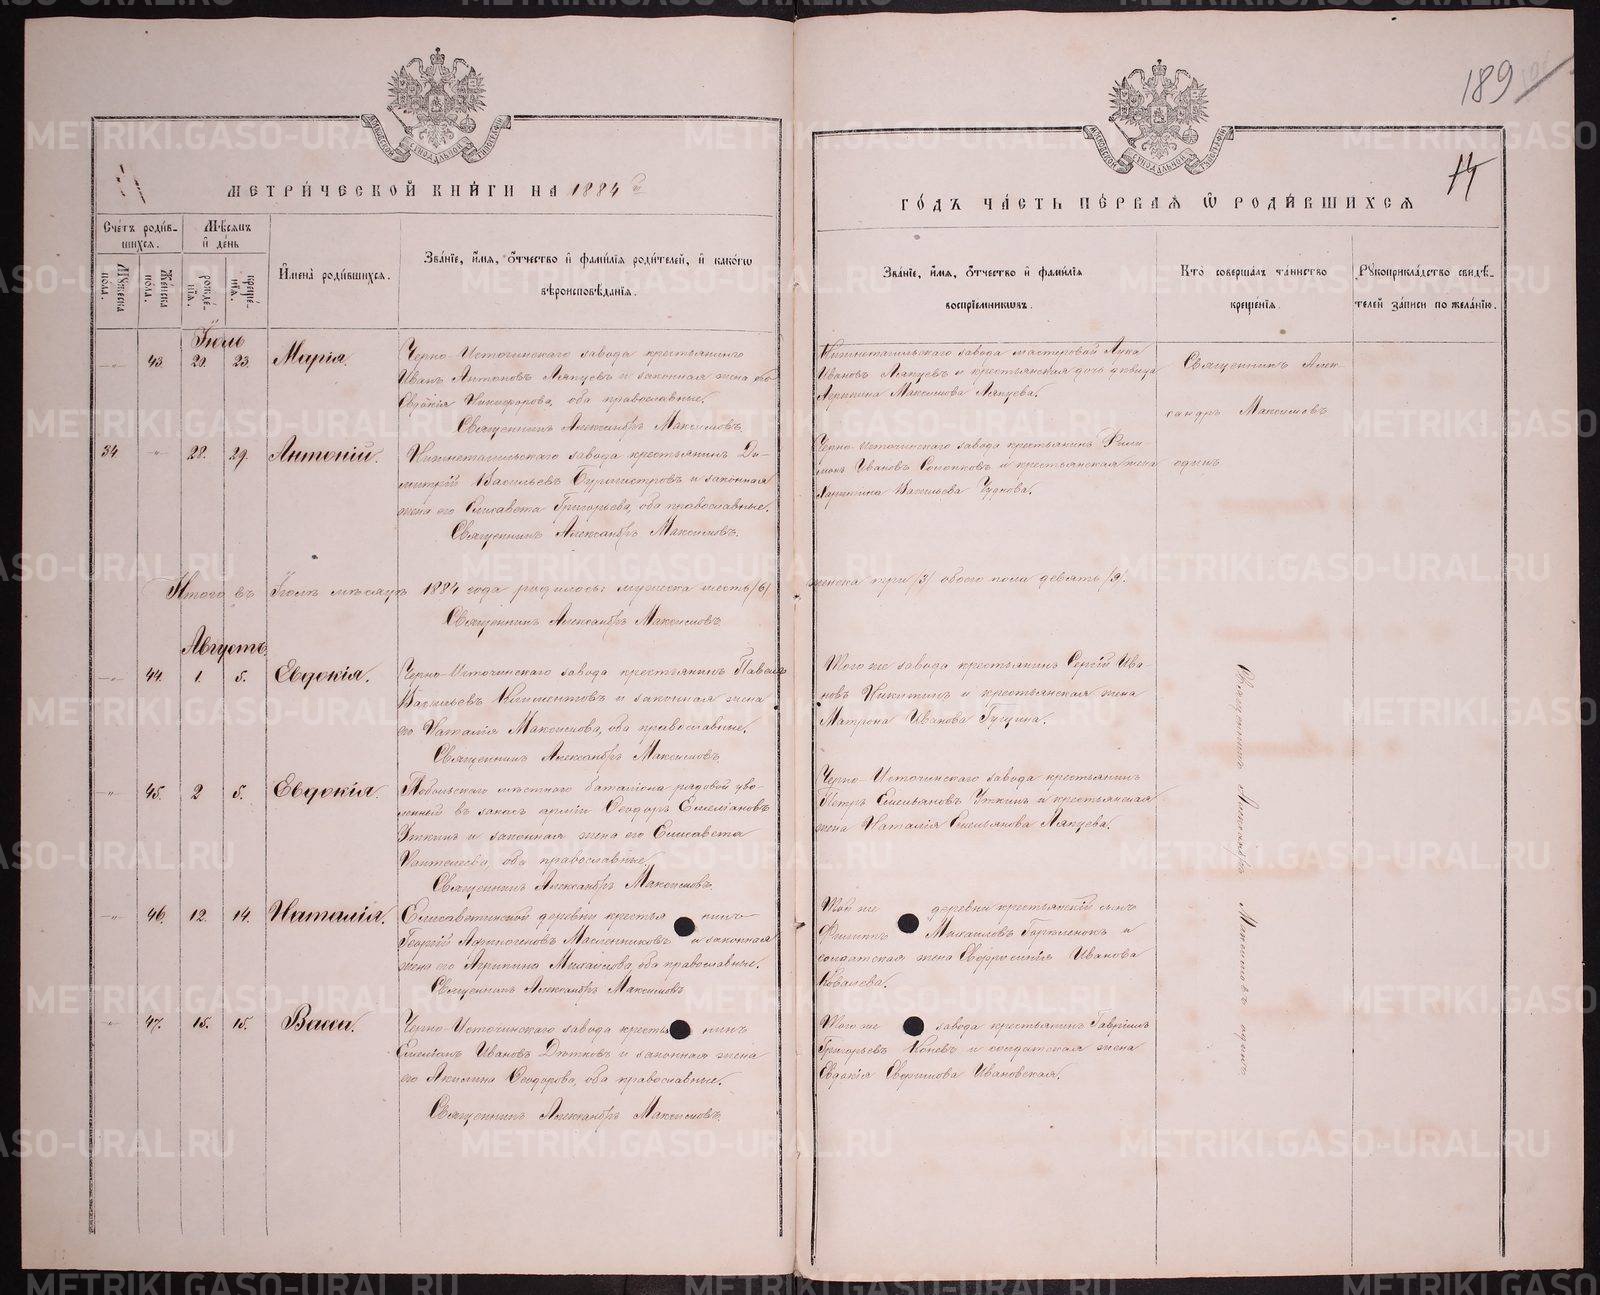 189
14
МЕТРИЧЕСКОЙ КНИГИ НА 1884й
ГОДЪ ЧАСТЬ ПЕРВАЯ Ѿ РОДИВШИХСЯ
Счетъ родив-
шихся.
Мѣсяцъ
и день
Мужеска
пола.
Женска
пола.
рожде-
нія.
креще-
нія.
Имена родившихся.
Званіе, имя, отчество и фамилія родителей, и какого
вѣроисповѣданія.
Званіе, имя, отчество и фамилія
воспріемниковъ.
Кто совершалъ таинство
крещенія.
Рукоприкладство свидѣ-
телей записи по желанію.
Іюль
43. 20. 23. Марія.
Черно-Источинскаго завода крестьянинъ
Иванъ Антоновъ Ляпцевъ и законная жена его
Евдокія Никифорова, оба православные.
Священникъ Александръ Максимовъ
Нижнетагильскаго завода мастеровой Лука
Ивановъ Ляпцевъ и крестьянская дочь дѣвица
Агрипина Максимова Ляпцева.
Священникъ Алек-
сандръ Максимовъ
одинъ
34 28. 29. Антоній.
Нижнетагильскаго завода крестьянинъ Ди-
митрій Васильевъ Бурмистровъ и законная
жена его Елисавета Григорьева, оба православные.
Священникъ Александръ Максимовъ.
Черно-Источинскаго завода крестьянинъ
Ивановъ и крестьянская жена
Васильева Чуднова.
Итого въ Іюлѣ мѣсяцѣ 1884 года родилось: мужеска шесть /6/
женска три /3/ обоего пола девять /9/.
Священникъ Александръ Максимовъ
Августъ
44. 1. 5. Евдокія.
Черно-Источинскаго завода крестьянинъ Павелъ
Васильевъ Климентовъ и законная жена
его Наталія Максимова, оба православные.
Священникъ Александръ Максимовъ
Того же завода крестьянинъ Сергій Ива-
новъ Никитинъ и крестьянская жена
Матрона Иванова Гущина.
45. 2 5. Евдокія.
Тобольскаго мѣстнаго баталіона рядовой уво-
ленный въ запас арміи Ѳеодоръ Емеліановъ
Уткинъ и законная жена его Елисавета
Пантелеева, оба православные.
Священникъ Александръ Максимовъ.
Черно-Источинскаго завода крестьянинъ
Петръ Емельяновъ Уткинъ и крестьянская
жена Наталія Емельянова Ляпцева.
46. 12. 14. Наталія.
Елисаветинской деревни крестьянинъ
Георгій Афиногеновъ Масленниковъ и законная
жена его Агрипина Михаилова, оба православные.
Священникъ Александръ Максимовъ
Той же деревни крестьянскій сынъ
Филиппъ Михаиловъ Горпиненок и
солдатская жена Евфросинія Иванова
Ковалева.
47. 15. 15. Васса.
Черно-Источинскаго завода крестьянинъ
Емеліанъ Ивановъ Дютковъ и законная жена
его Акилина Ѳеодорова, оба православные.
Священникъ Александръ Максимовъ.
Того же завода крестьянинъ Гавріилъ
Григорьевъ Коневъ и солдатская жена
Евдокія Ивановская.
Священникъ Александръ Максимовъ одинъ
METRIKI.GASO-URAL.RU